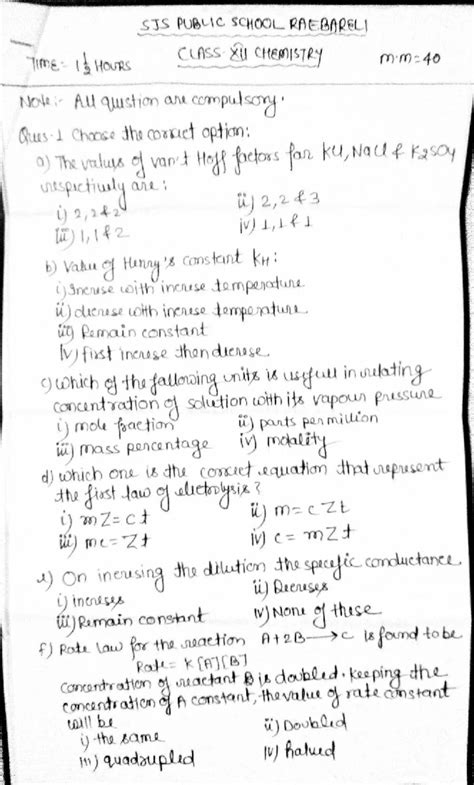 SJS PUBLIC SCHOOL RAEBARELI
TIME = 1 1/2 HOURS CLASS XII CHEMISTRY M·M=40
Note:- All qustion are compulsory.
Ques-1 Choose the correct option:
a) The values of van't Hoff factors for KCl, NaCl & K2SO4
respectively are:
i) 2, 2 & 2 ii) 2, 2 & 3
iii) 1, 1 & 2 iv) 1, 1 & 1
b) Value of Henry's constant KH:
i) Increse with increse temperature
ii) decrese with increse temperature
iii) Remain constant
iv) first increse then decrese
c) Which of the following units is usefull in relating
concentration of solution with its vapour pressure
i) mole fraction ii) parts per million
iii) mass percentage iv) molality
d) Which one is the correct equation that represent
the first law of electrolysis?
i) mZ = ct ii) m = cZt
iii) mc = Zt iv) c = mZt
e) On incrusing the dilution the specefic conductance
i) increses ii) Decreses
iii) Remain constant iv) None of these
f) Rate law for the reaction A+2B → C is found to be
Rate = K[A][B]
Concentration of reactant B is doubled. keeping the
concentration of A constant, the value of rate constant
will be
i) the same ii) Doubled
iii) quadrupled iv) halved